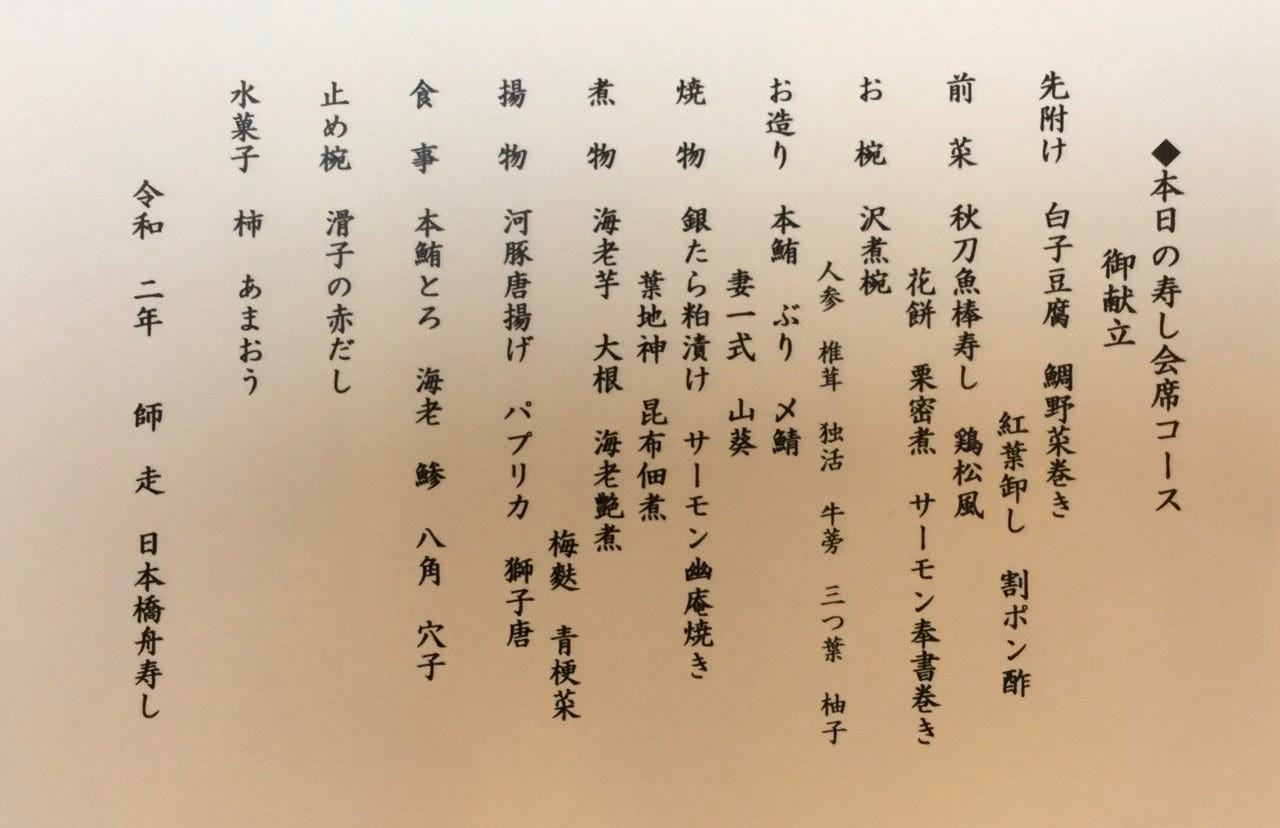 ◆本日の寿し会席コース
御献立
先附け　白子豆腐　鯛野菜巻き
紅葉卸し　割ポン酢
前菜　秋刀魚棒寿し　鶏松風
花餅　栗密煮　サーモン奉書巻き
お椀　沢煮椀
人参　椎茸　独活　牛蒡　三つ葉　柚子
お造り　本鮪　ぶり　〆鯖
妻一式　山葵
焼物　銀たら粕漬け　サーモン幽庵焼き
葉地神　昆布佃煮
煮物　海老芋　大根　海老艶煮
梅麩　青梗菜
揚物　河豚唐揚げ　パプリカ　獅子唐
食事　本鮪とろ　海老　鯵　八角　穴子
止め椀　滑子の赤だし
水菓子　柿　あまおう
令和　二年　師走　日本橋舟寿し